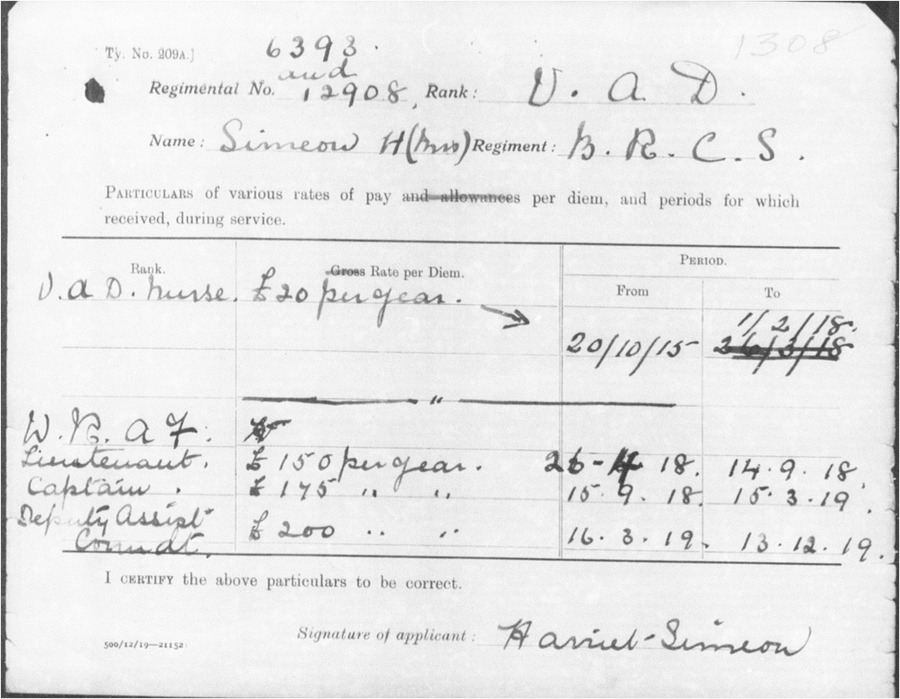 Ty. No. 209A.]
6393.
1308
and
Regimental No. 12908, Rank: V. A. D.
Name: Simeon H (Mrs) Regiment: B. R. C. S.
PARTICULARS of various rates of pay and allowances per diem, and periods for which
received, during service.
Rank. Gross Rate per Diem. PERIOD.
From To
V. A D. Nurse. £20 per year.
1/2/18.
20/10/15 26/3/18
"
W. R. A F.
Lieutenant. £150 per year. 26-4 18. 14.9.18.
Captain. £175 " " 15.9.18. 15.3.19.
Deputy Assist
Comdt. £200 " " 16.3.19. 13.12.19.
I CERTIFY the above particulars to be correct.
Signature of applicant: Harriet Simeon
500/12/19—21152